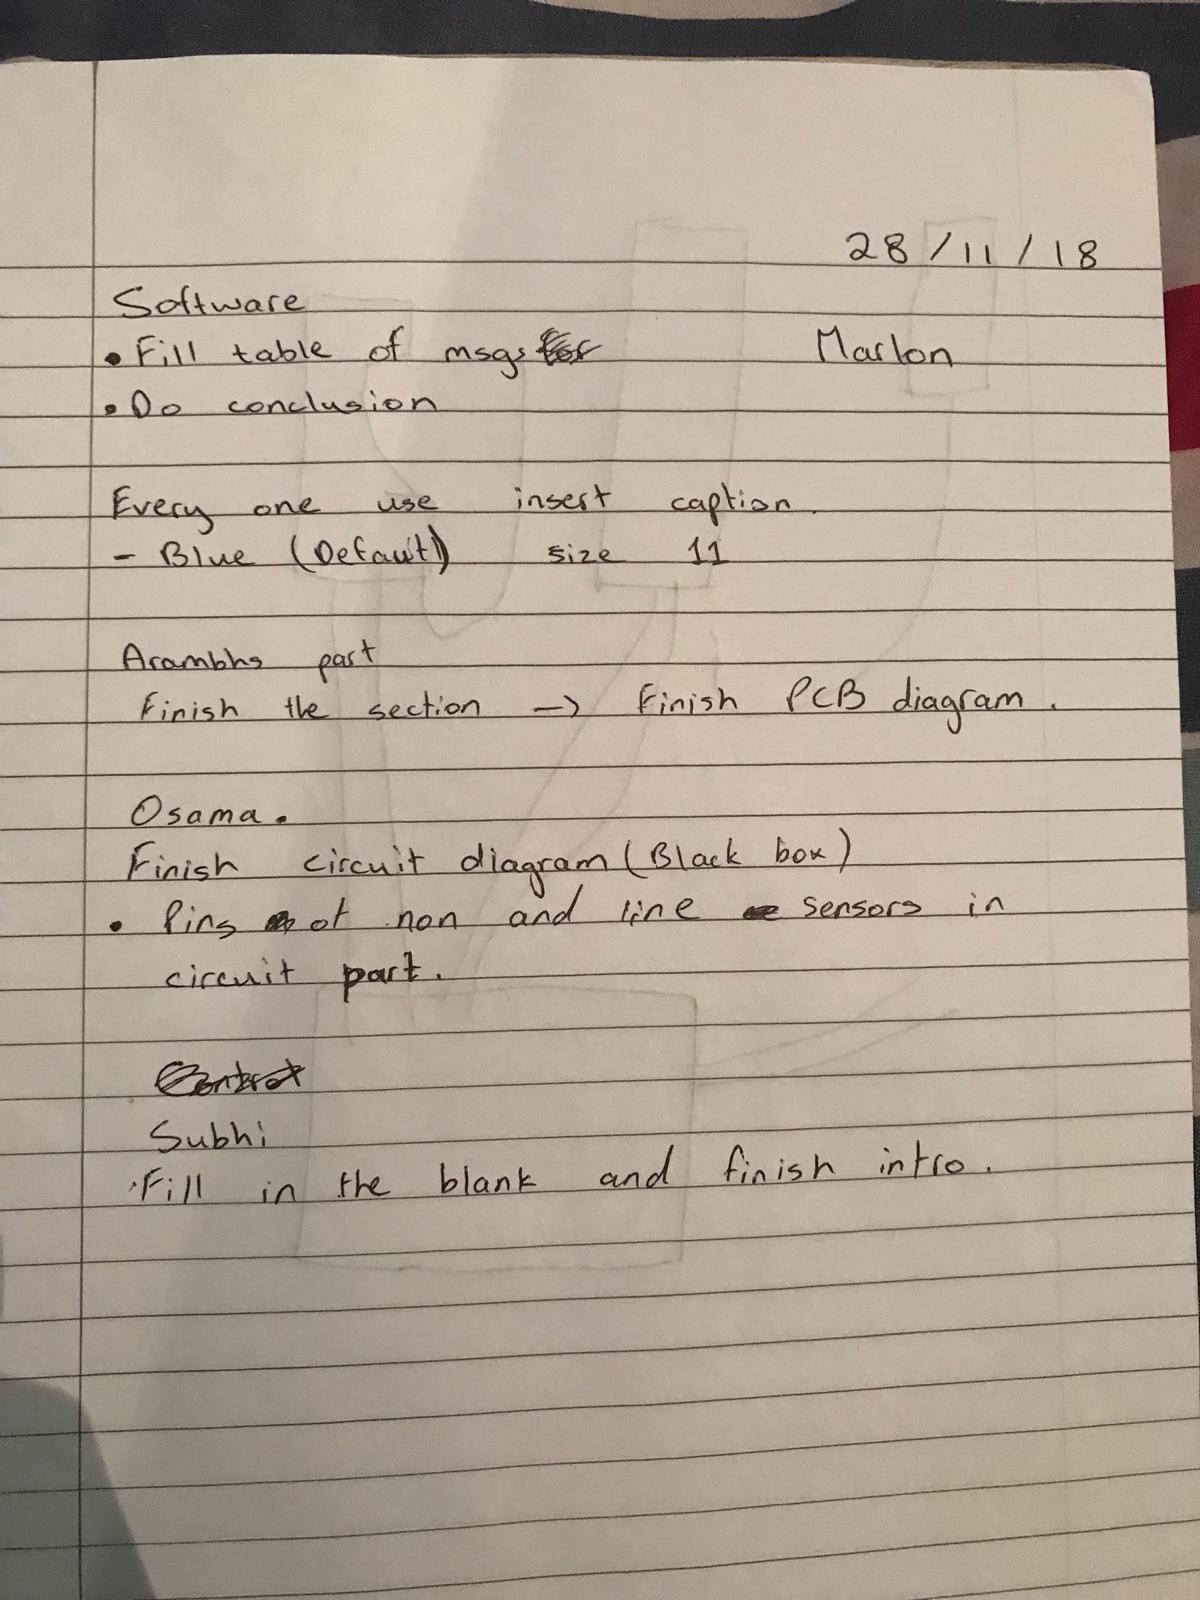 28/11/18
Software
• Fill table of msgs Marlon
• Do conclusion
Every one use insert caption.
- Blue (Default) size 11
Arambhs part
Finish the section -> Finish PCB diagram.
Osama.
Finish circuit diagram (Black box)
• Pins of non and line sensors in
circuit part.
Subhi
• Fill in the blank and finish intro.